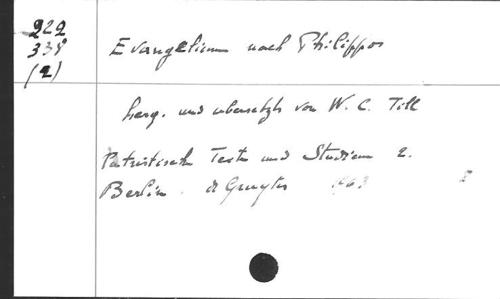 222
338
(2)
Evangelium nach Philippos
herg. und übersetzt von W. C. Till
Patristische Texte und Studien 2.
Berlin de Gruyter 1963